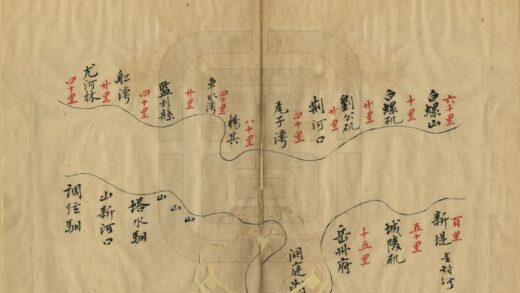 六十里
白螺山
十里
白螺矶
廿里
劉公矶
廿里
荆河口
四十里
尾子灣
八十里
楊其
四十里
車水灣
廿里
監利縣
四十里
船灣
廿里
尤河林
四十里
百里
新堤
五十里
城陵矶
十五里
岳州府
洞庭
山
山
山
塔水馹
山新河口
調弦馹